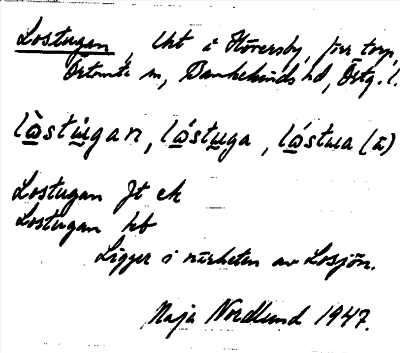 Lostugan, lht i Höversby, förr torp,
Örtomta sn, Bankekinds hd, Östg. l.
lòstùgan, lóstuga, lóstua (a)
Lostugan Jt ek
Lostugan hb
Ligger i närheten av Losjön.
Maja Nordlund 1947.